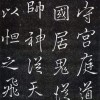 守宮庭道
國居鬼從
帥神從天
以之飛